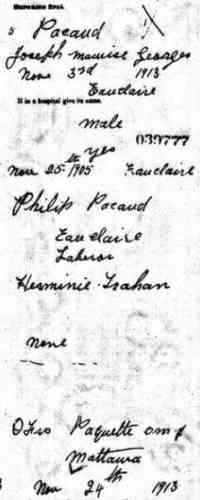 Surname first.
5 Pacaud
Joseph Maurise Georges
Nov 3rd 1913
Eauclaire
If in a hospital give its name.
male
039777
yes
Nov 25th 1905 Eauclaire
Philip Pacaud
Eauclaire
Laboror
Herminie Trahan
None
Paquette omf
Mattawa
Nov 24th 1913